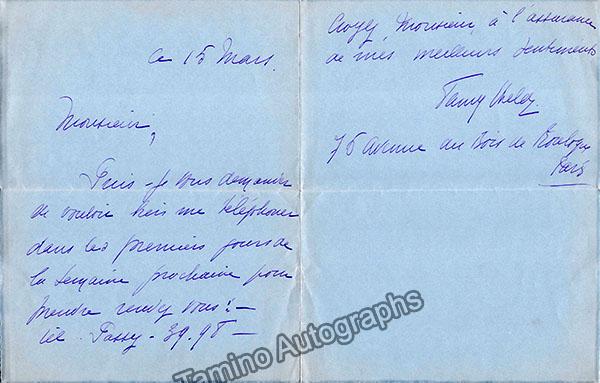 ce 15 Mars.
Monsieur,
Puis-je vous demander
de vouloir bien me téléphoner
dans les premiers jours de
la semaine prochaine pour
prendre rendez vous? —
tél. Passy - 39.98 —
Croyez, Monsieur, à l'assurance
de mes meilleurs sentiments
Fanny Heldy
75 Avenue du Bois de Boulogne
Paris
Tamino Autographs